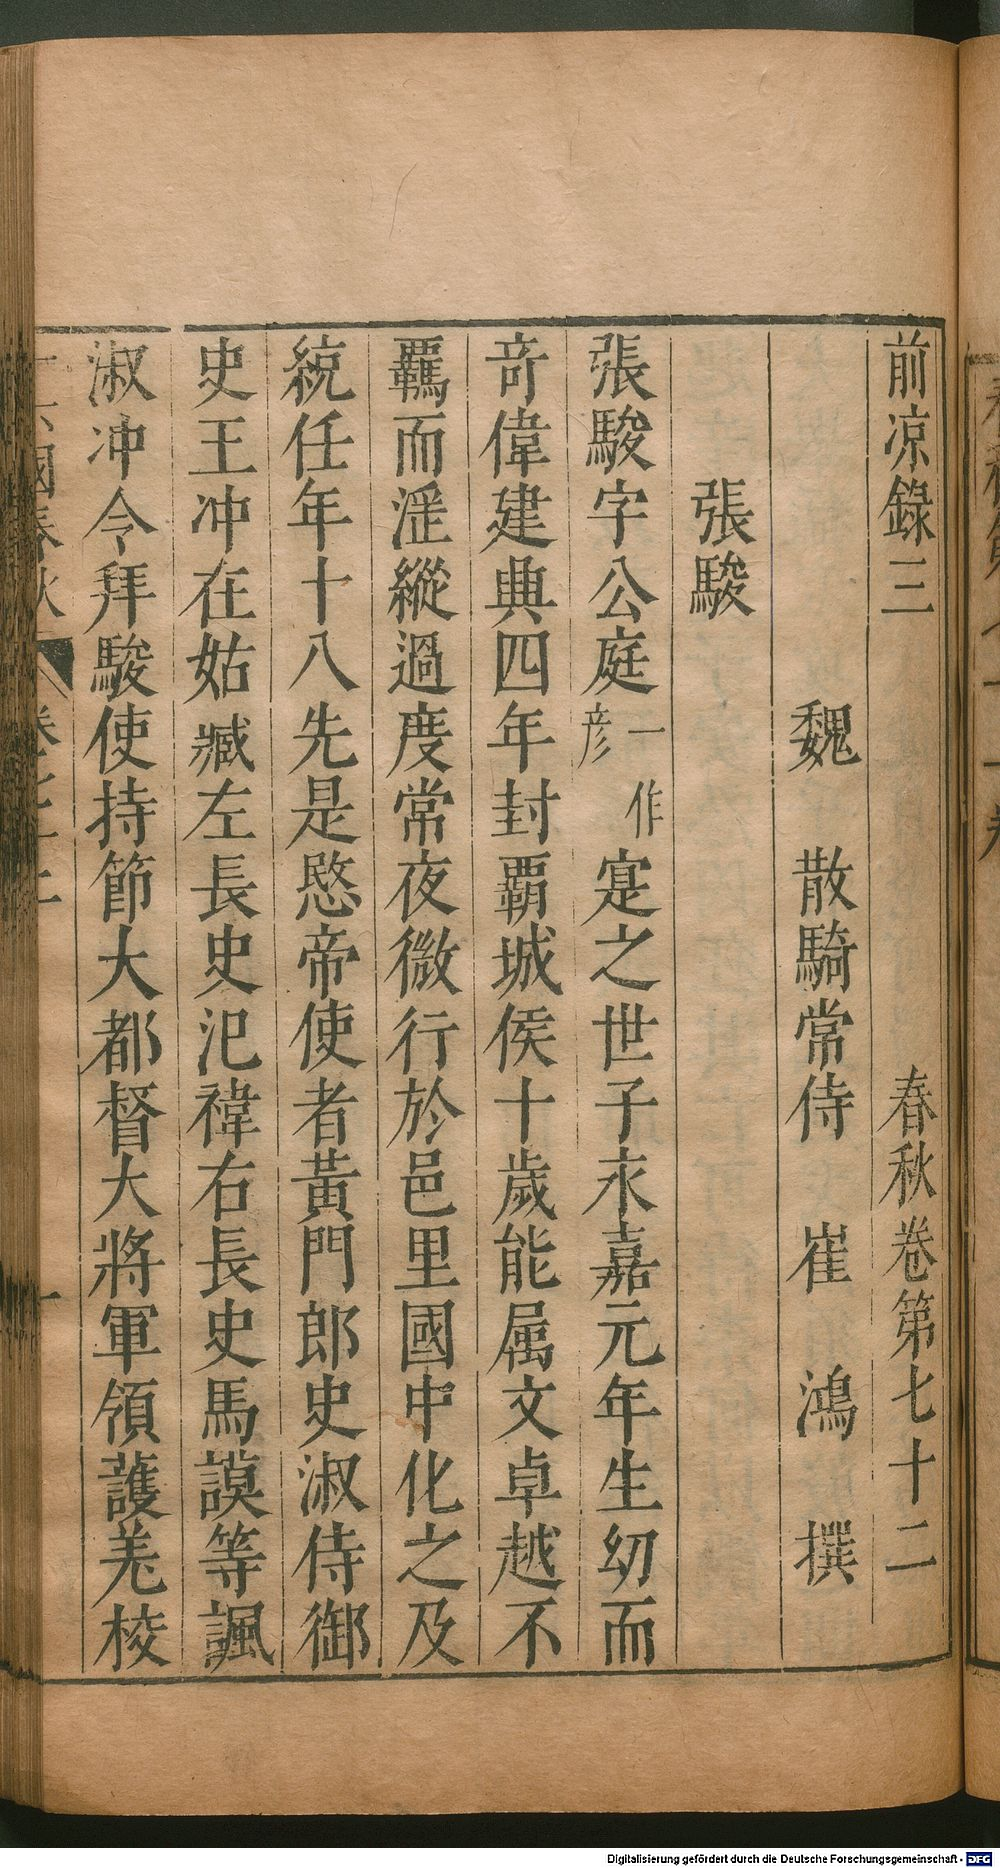 前凉錄三 春秋卷第七十二
魏 散騎常侍 崔 鴻 撰
張駿
張駿字公庭一作彥寔之世子永嘉元年生幼而
竒偉建興四年封覇城侯十歲能属文卓越不
羈而淫縱過度常夜微行於邑里國中化之及
統任年十八先是愍帝使者黃門郎史淑侍御
史王冲在姑臧左長史氾禕右長史馬謨等諷
淑冲令拜駿使持節大都督大將軍領護羌校
國春秋 卷七十二 一
Digitalisierung gefördert durch die Deutsche Forschungsgemeinschaft - DFG